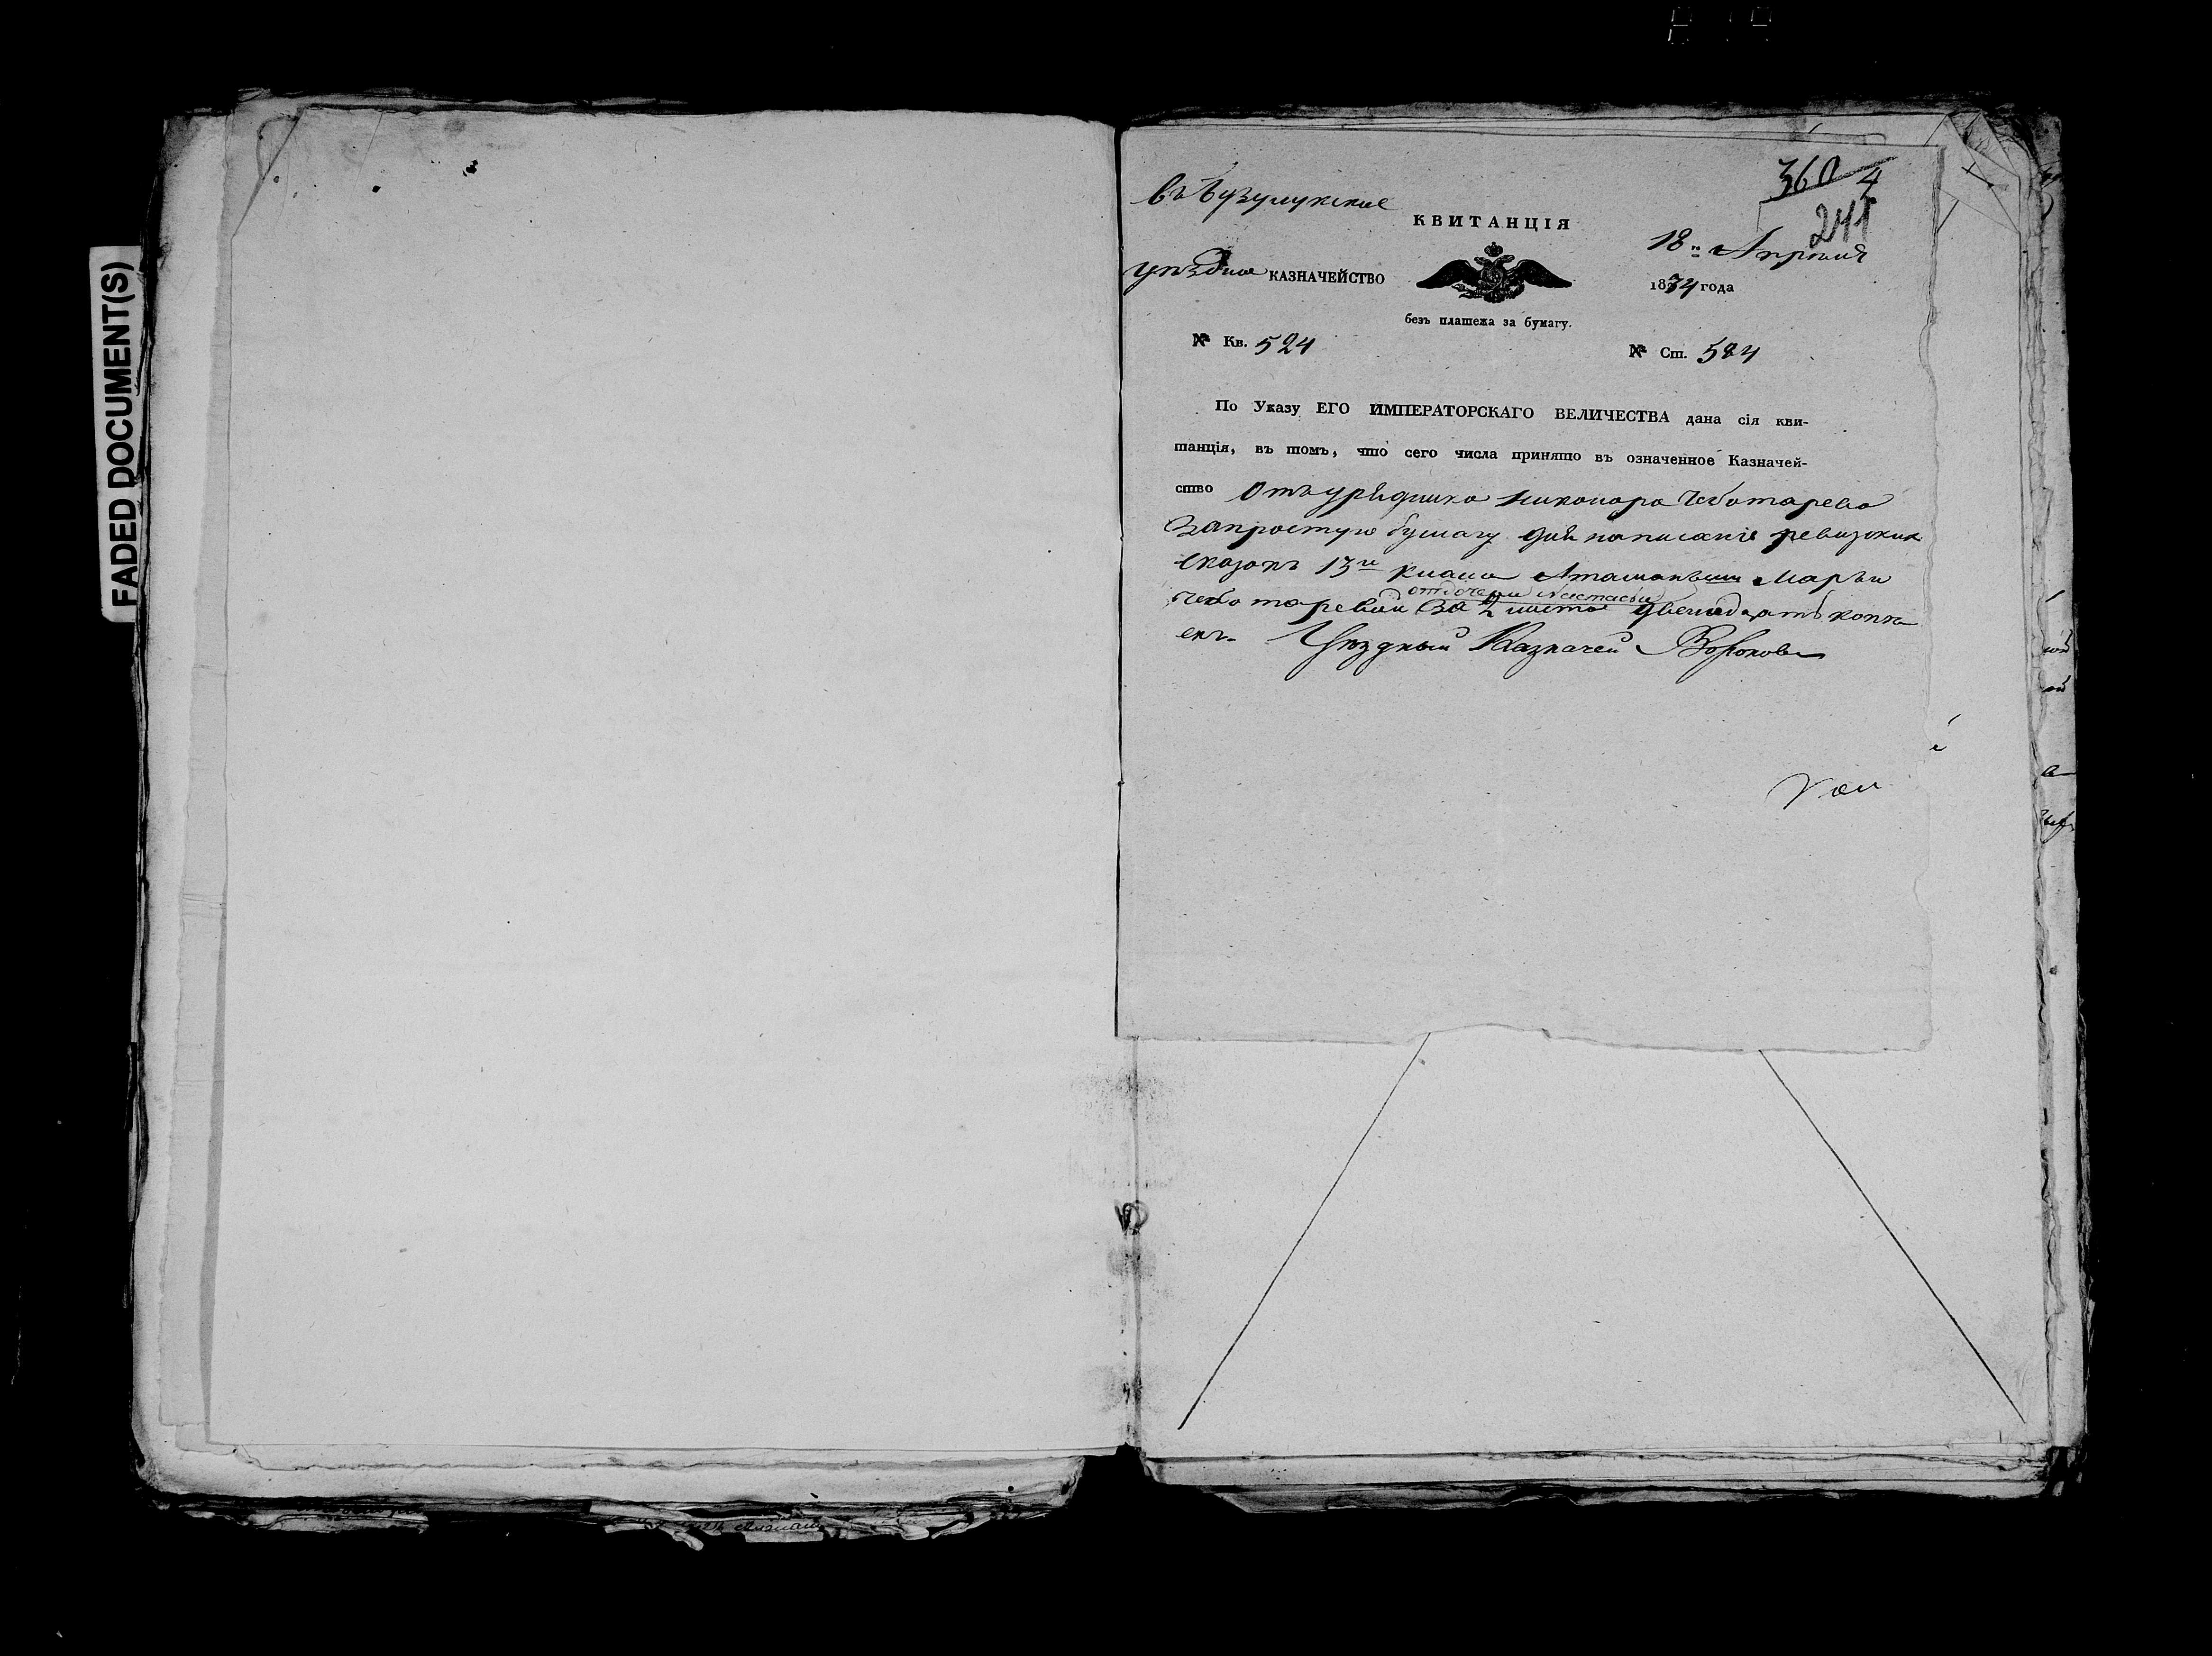 FADED DOCUMENT(S)
360 4
241
въ Бузулукское
КВИТАНЦІЯ
18го Апреля
уездное КАЗНАЧЕЙСТВО
1834 года
безъ платежа за бумагу.
№ Кв. 524
№ Ст. 524
По Указу ЕГО ИМПЕРАТОРСКАГО ВЕЛИЧЕСТВА дана сія кви-
танція, въ томъ, что сего числа принято въ означенное Казначей-
ство отъ урядника Никонора Чеботарева
за простую бумагу для написанія ревизскихъ
сказокъ 13го класа Атаманши Марьи
от дочери Настасьи
Чеботаревой за 2 листа двенадцать копе
екъ. Уездный Казначей